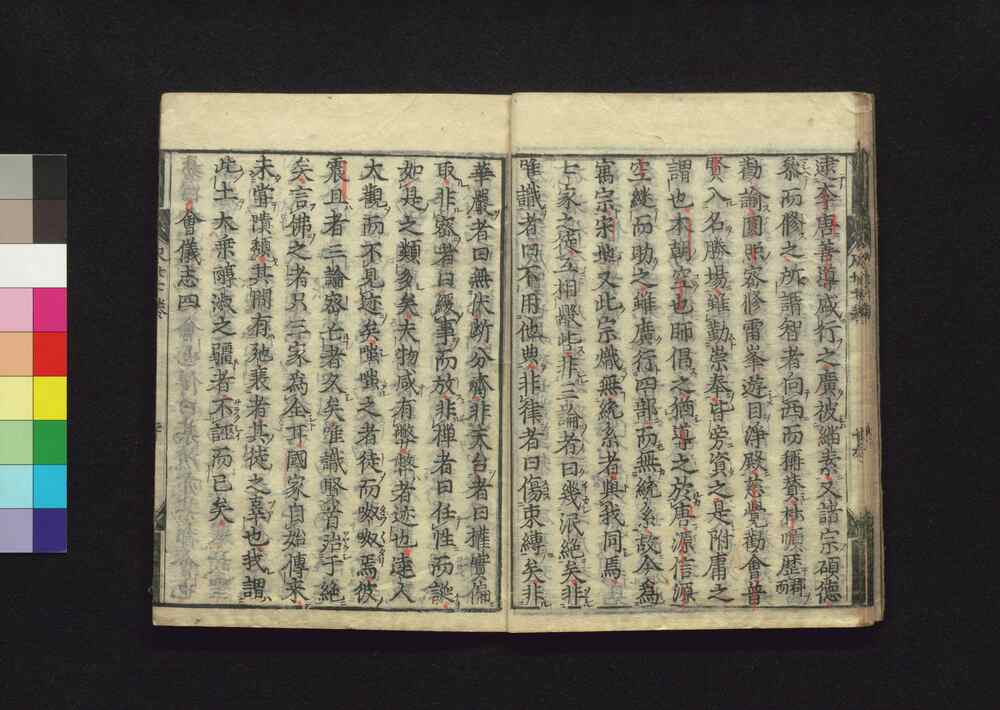 逮李唐善導咸行之廣被緇素又諸宗碩德
黎而修之所謂智者向西而稱賛枯 歴郡而
勸論圓照密修雷峯遊目淨殿慈覺勸會普
賢入名勝場雖勤崇奉皆旁資之是附庸之
謂也本朝空也師倡之猶導之於唐源信源
空継而助之雖廣行四部而無統系故今為
寓宗宋地又此宗熾無統系者與我同焉
七家之徒互相 此非三論者曰幾派絶矣非
唯識者曰不用他典非律者曰傷束縛矣非
華嚴者曰無伏断分齊非天台者曰權實偏
取非密者曰緩事而放非禅者曰任性而誕
如是之類多矣夫物咸有弊弊者迹也達人
大觀而不見迹矣嗤嗤之者徒而呶呶焉彼
震旦者三論密亡者久矣唯識賢首殆于絶
矣言佛之者只三家為全耳國家自始傳来
未嘗隤 其間有弛衰者其徒之辜也我謂
此土大乘醇淑之疆者不誣而已矣
會儀志四